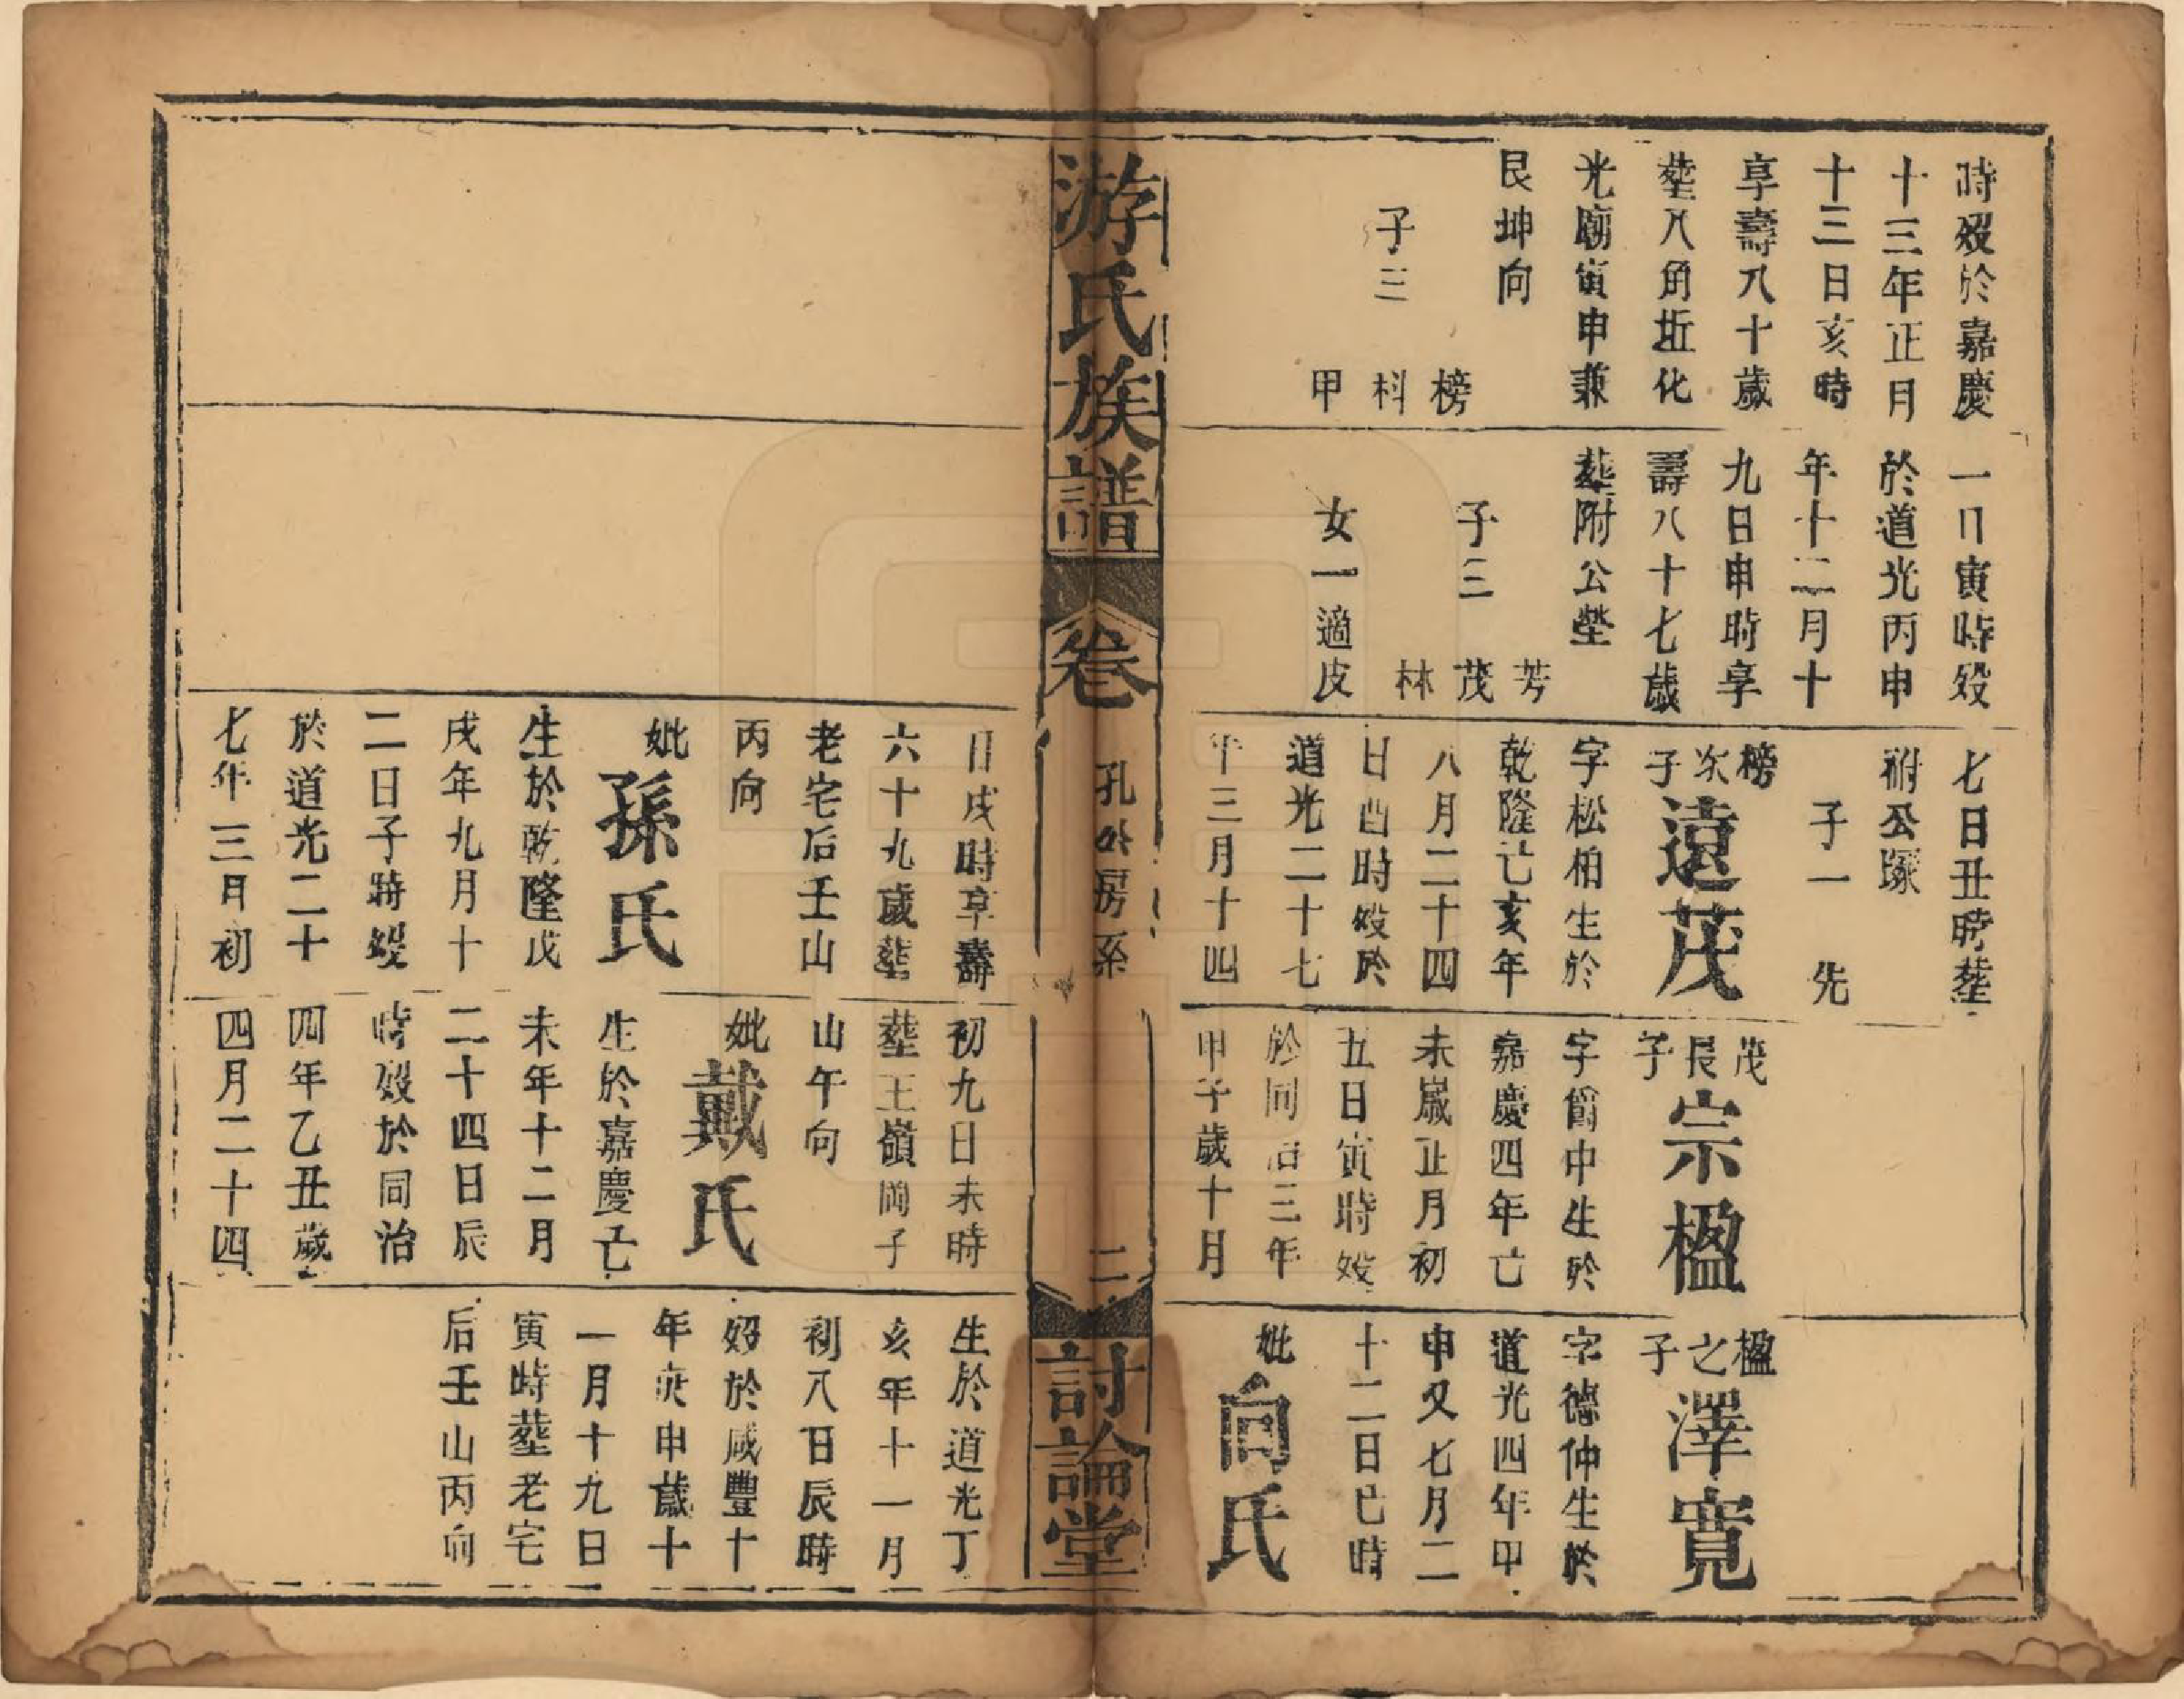 時歿於嘉慶
十三年正月
十三日亥時
享壽八十歲
塟八角坵化
光廟寅申兼
艮坤向
子三
榜
科
甲
一日寅時歿
於道光丙申
年十二月十
九日申時享
壽八十七歲
塟附公塋
子三
芳
茂
林
女一適皮
七日丑時塟
祔公塚
子一 先
榜次子遠茂
字松柏生於
乾隆亡亥年
八月二十四
日酉時歿於
道光二十七
年三月十四
茂長子宗楹
字爵中生於
嘉慶四年亡
未歲正月初
五日寅時歿
於同治三年
甲子歲十月
楹之子澤寛
字德仲生於
道光四年甲
申又七月二
十二日巳時
妣向氏
游氏族譜
卷
孔公房系
二
討論堂
日戌時享壽
六十九歲塟
老宅后壬山
丙向
妣孫氏
生於乾隆戊
戌年九月十
二日子時歿
於道光二十
七年三月初
初九日未時
塟王嶺岡子
山午向
妣戴氏
生於嘉慶亡
未年十二月
二十四日辰
時歿於同治
四年乙丑歲
四月二十四
生於道光丁
亥年十一月
初八日辰時
歿於咸豐十
年庚申歲十
一月十九日
寅時塟老宅
后壬山丙向